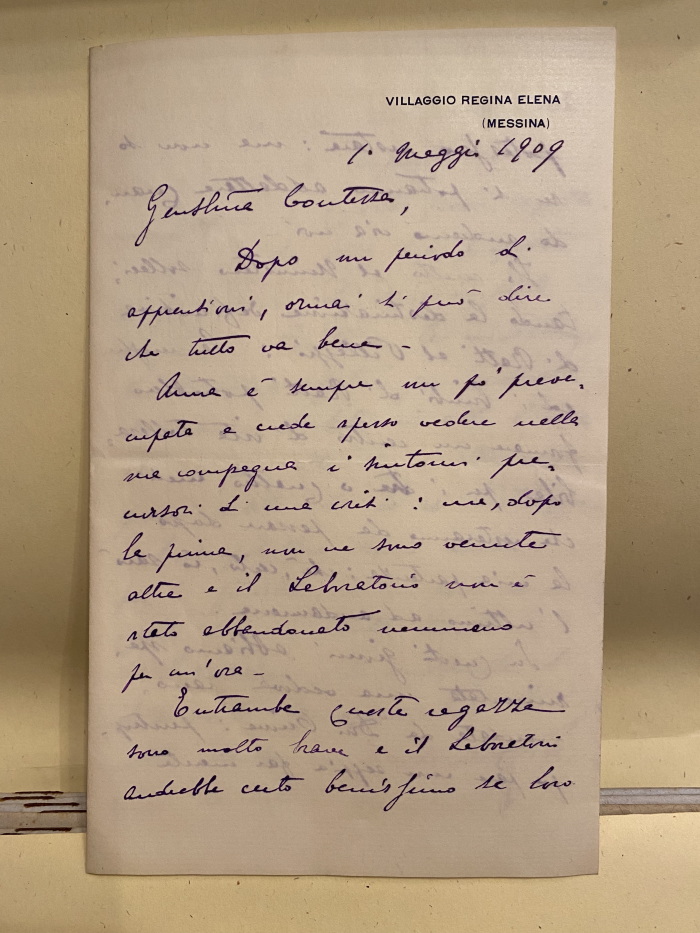 VILLAGGIO REGINA ELENA
(MESSINA)
1. Maggio 1909
Gentilma Contessa,
Dopo un periodo di
apprensioni, ormai si può dire
che tutto va bene –
Anna è sempre un pò preoc-
cupata e crede spesso vedere nella
sua compagna i sintomi pre-
cursori di una crisi: ma, dopo
la prima, non ne sono venute
altre e il Laboratorio non è
stato abbandonato nemmeno
per un'ora –
Entrambe queste ragazze
sono molto brave e il Laboratorio
andrebbe certo benissimo se loro